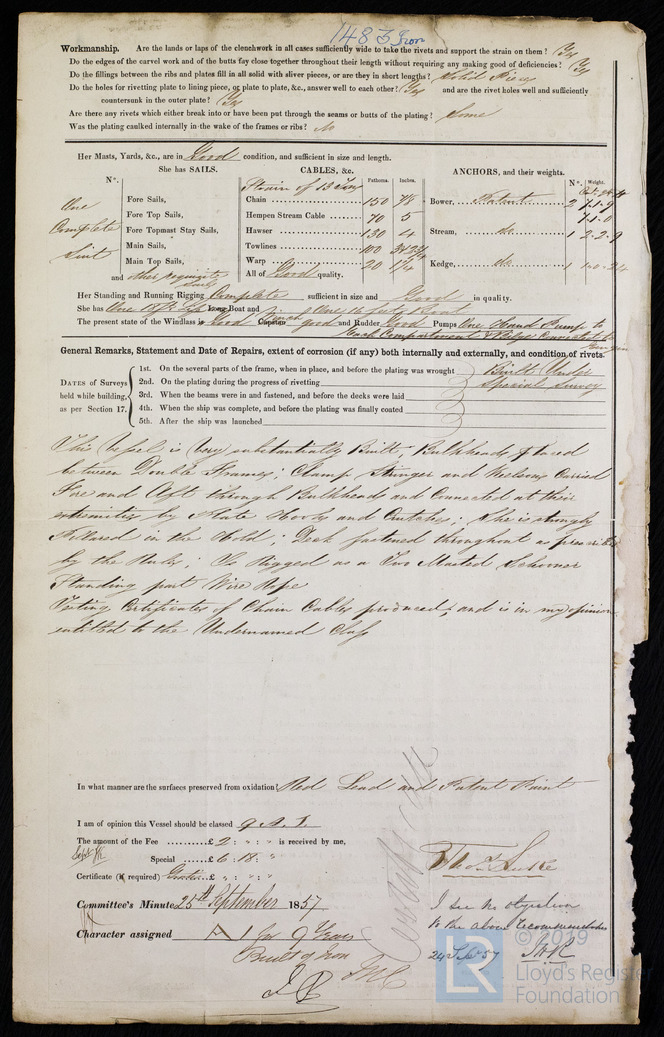 1483 Iron
Workmanship. Are the lands or laps of the clenchwork in all cases sufficiently wide to take the rivets and support the strain on them? Yes
Do the edges of the carvel work and of the butts fay close together throughout their length without requiring any making good of deficiencies? Yes
Do the fillings between the ribs and plates fill in all solid with sliver pieces, or are they in short lengths? Solid Pieces
Do the holes for rivetting plate to lining piece, or plate to plate, &c., answer well to each other? Yes and are the rivet holes well and sufficiently
countersunk in the outer plate? Yes
Are there any rivets which either break into or have been put through the seams or butts of the plating? Some
Was the plating caulked internally in the wake of the frames or ribs? No
Her Masts, Yards, &c., are in Good condition, and sufficient in size and length.
She has SAILS. CABLES, &c. ANCHORS, and their weights.
N°. Strain of 13 Fathoms. Inches. N°. Weight.
One Complete Suit
Fore Sails,
Fore Top Sails,
Fore Topmast Stay Sails,
Main Sails,
Main Top Sails,
and other requisite Sails
Chain 150 7/8
Hempen Stream Cable 70 5
Hawser 130 4
Towlines 100
Warp 20
All of Good quality.
Bower, Patent 2 7-1-9
7-1-0
Stream, do 1 2-2-9
Kedge, do 1
Her Standing and Running Rigging Complete sufficient in size and Good in quality.
She has One 18 ft Long Boat and One 16 feet Boat
The present state of the Windlass is Good Capstan Winch good and Rudder Good Pumps One Hand Pump to
Each Compartment & Connected to Engine
General Remarks, Statement and Date of Repairs, extent of corrosion (if any) both internally and externally, and condition of rivets.
DATES of Surveys held while building, as per Section 17.
1st. On the several parts of the frame, when in place, and before the plating was wrought
2nd. On the plating during the progress of rivetting
3rd. When the beams were in and fastened, and before the decks were laid
4th. When the ship was complete, and before the plating was finally coated
5th. After the ship was launched
Built Under
Special Survey
This Vessel is very substantially Built, Bulkheads placed
between Double Frames; Clamp, Stringer and Keelsons Carried
Fore and Aft through Bulkheads and Connected at their
extremities by Plate Hooks and Crutches; She is strongly
Pillared in the Hold; Deck fastened throughout as prescribed
by the Rules; Is Rigged as a Two Masted Schooner
Standing part Wire Rope
Testing Certificates of Chain Cables produced, and is in my opinion
entitled to the Undernamed Class
In what manner are the surfaces preserved from oxidation? Red Lead and Patent Paint
I am of opinion this Vessel should be classed 9 A.1.
The amount of the Fee £ 2 : „ : „ is received by me,
Special £ 6 : 18 : „
Certificate (if required) Gratis £ „ : „ : „
Committee's Minute 25th September 1857
I see no objection
to the above recommendation
24 Sept 57
Character assigned A 1 for 9 Years
Built of Iron
© 2019
LR
Lloyd's Register
Foundation